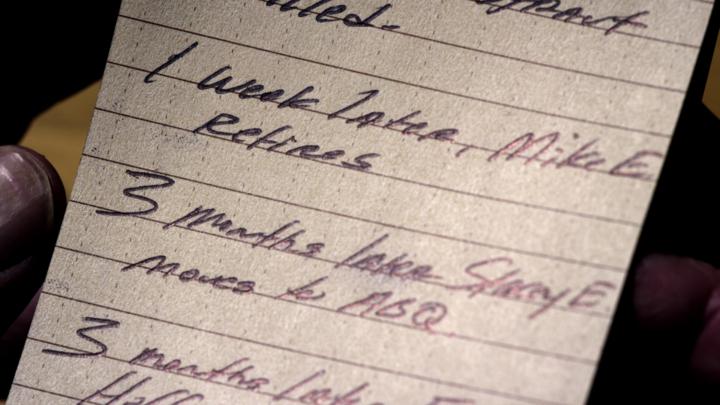 1 week later, Mike E.
Retires
3 months later Stacey E.
moves to ABQ
3 months later